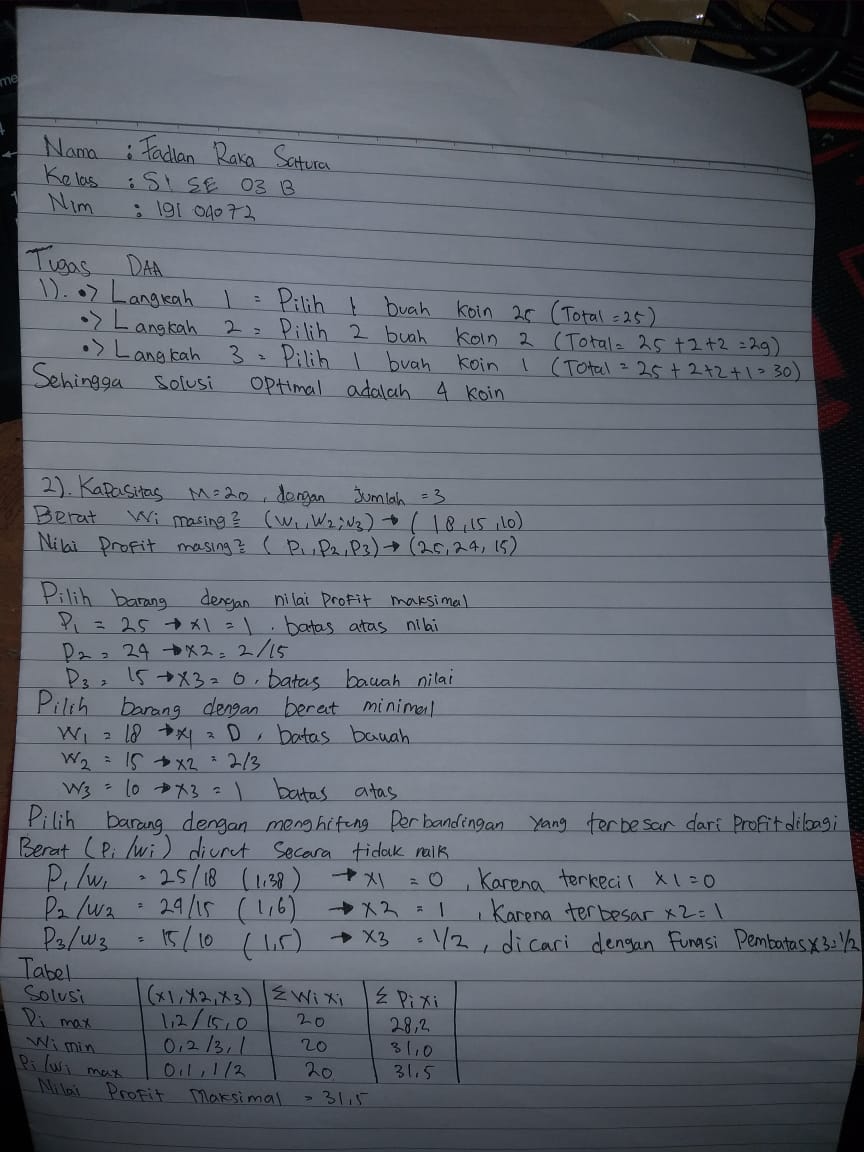 Nama : Fadlan Raka Satura
Kelas : S1 SE 03 B
Nim : 191 04072
Tugas DAA
1). •> Langkah 1 = Pilih 1 buah koin 25 (Total = 25)
•> Langkah 2 = Pilih 2 buah koin 2 (Total = 25 + 2 + 2 = 29)
•> Langkah 3 = Pilih 1 buah koin 1 (Total = 25 + 2 + 2 + 1 = 30)
Sehingga solusi optimal adalah 4 koin
2). Kapasitas M = 20, dengan Jumlah = 3
Berat Wi masing² (W1, W2, W3) → (18, 15, 10)
Nilai Profit masing² (P1, P2, P3) → (25, 24, 15)
Pilih barang dengan nilai Profit maksimal
P1 = 25 → x1 = 1. batas atas nilai
P2 = 24 → x2 = 2/15
P3 = 15 → x3 = 0, batas bawah nilai
Pilih barang dengan berat minimal
W1 = 18 → x1 = 0, batas bawah
W2 = 15 → x2 = 2/3
W3 = 10 → x3 = 1 batas atas
Pilih barang dengan menghitung Perbandingan yang terbesar dari Profit dibagi
Berat (Pi/wi) diurut Secara tidak naik
P1/w1 = 25/18 (1,38) → x1 = 0, Karena terkecil x1 = 0
P2/w2 = 24/15 (1,6) → x2 = 1, Karena terbesar x2 = 1
P3/w3 = 15/10 (1,5) → x3 = 1/2, dicari dengan Fungsi Pembatas x3 = 1/2
Tabel
Solusi (x1, x2, x3) Σ Wi xi Σ Pi xi
Pi max 1, 2/15, 0 20 28,2
Wi min 0, 2/3, 1 20 31,0
Pi/wi max 0, 1, 1/2 20 31,5
Nilai Profit Maksimal = 31,5